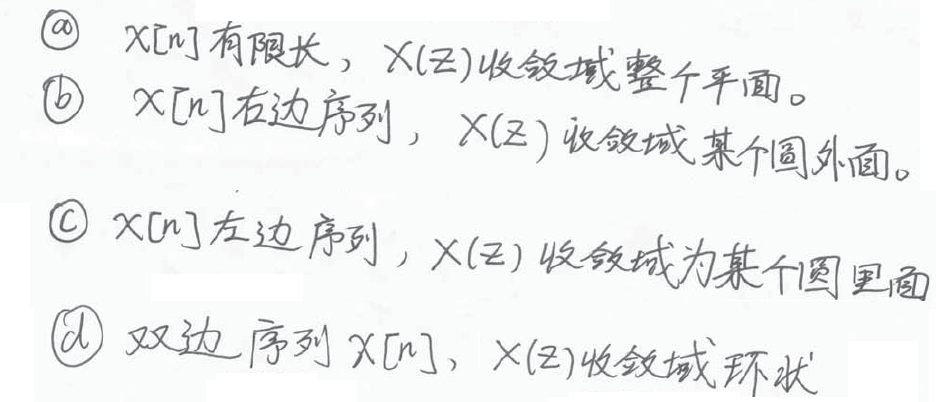 ⓐ X[n]有限长，X(Z)收敛域整个平面。
ⓑ X[n]右边序列，X(Z)收敛域某个圆外面。
ⓒ X[n]左边序列，X(Z)收敛域为某个圆里面
ⓓ 双边序列X[n]、X(Z)收敛域环状